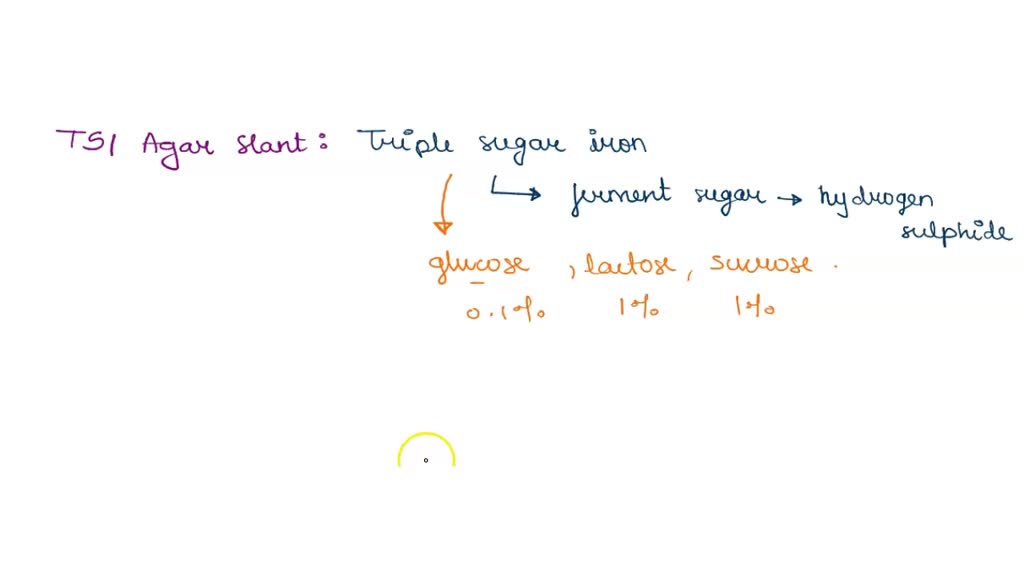 TSI Agar slant: Triple sugar iron
↳ ferment sugar → hydrogen
sulphide
glucose , lactose, sucrose .
0.1% 1% 1%